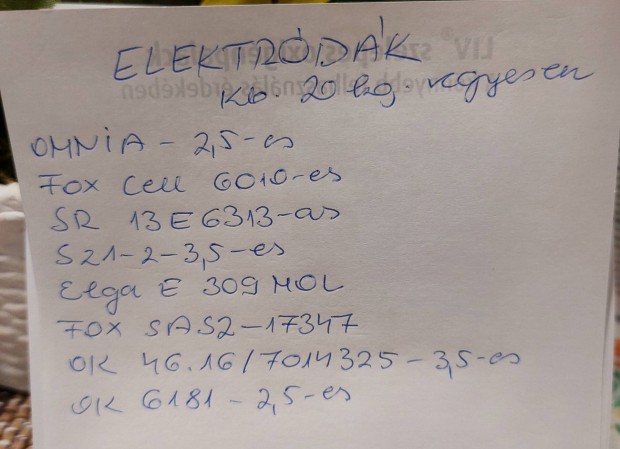 ELEKTRÓDÁK
Kb. 20 kg. vegyesen
OMNIA - 2,5-es
FOX Cell 6010-es
SR 13 E6313-as
S21-2-3,5-es
Elga E 309 MOL
FOX SAS2-17347
OK 46.16/7014325-3,5-es
OK 6181-2,5-es